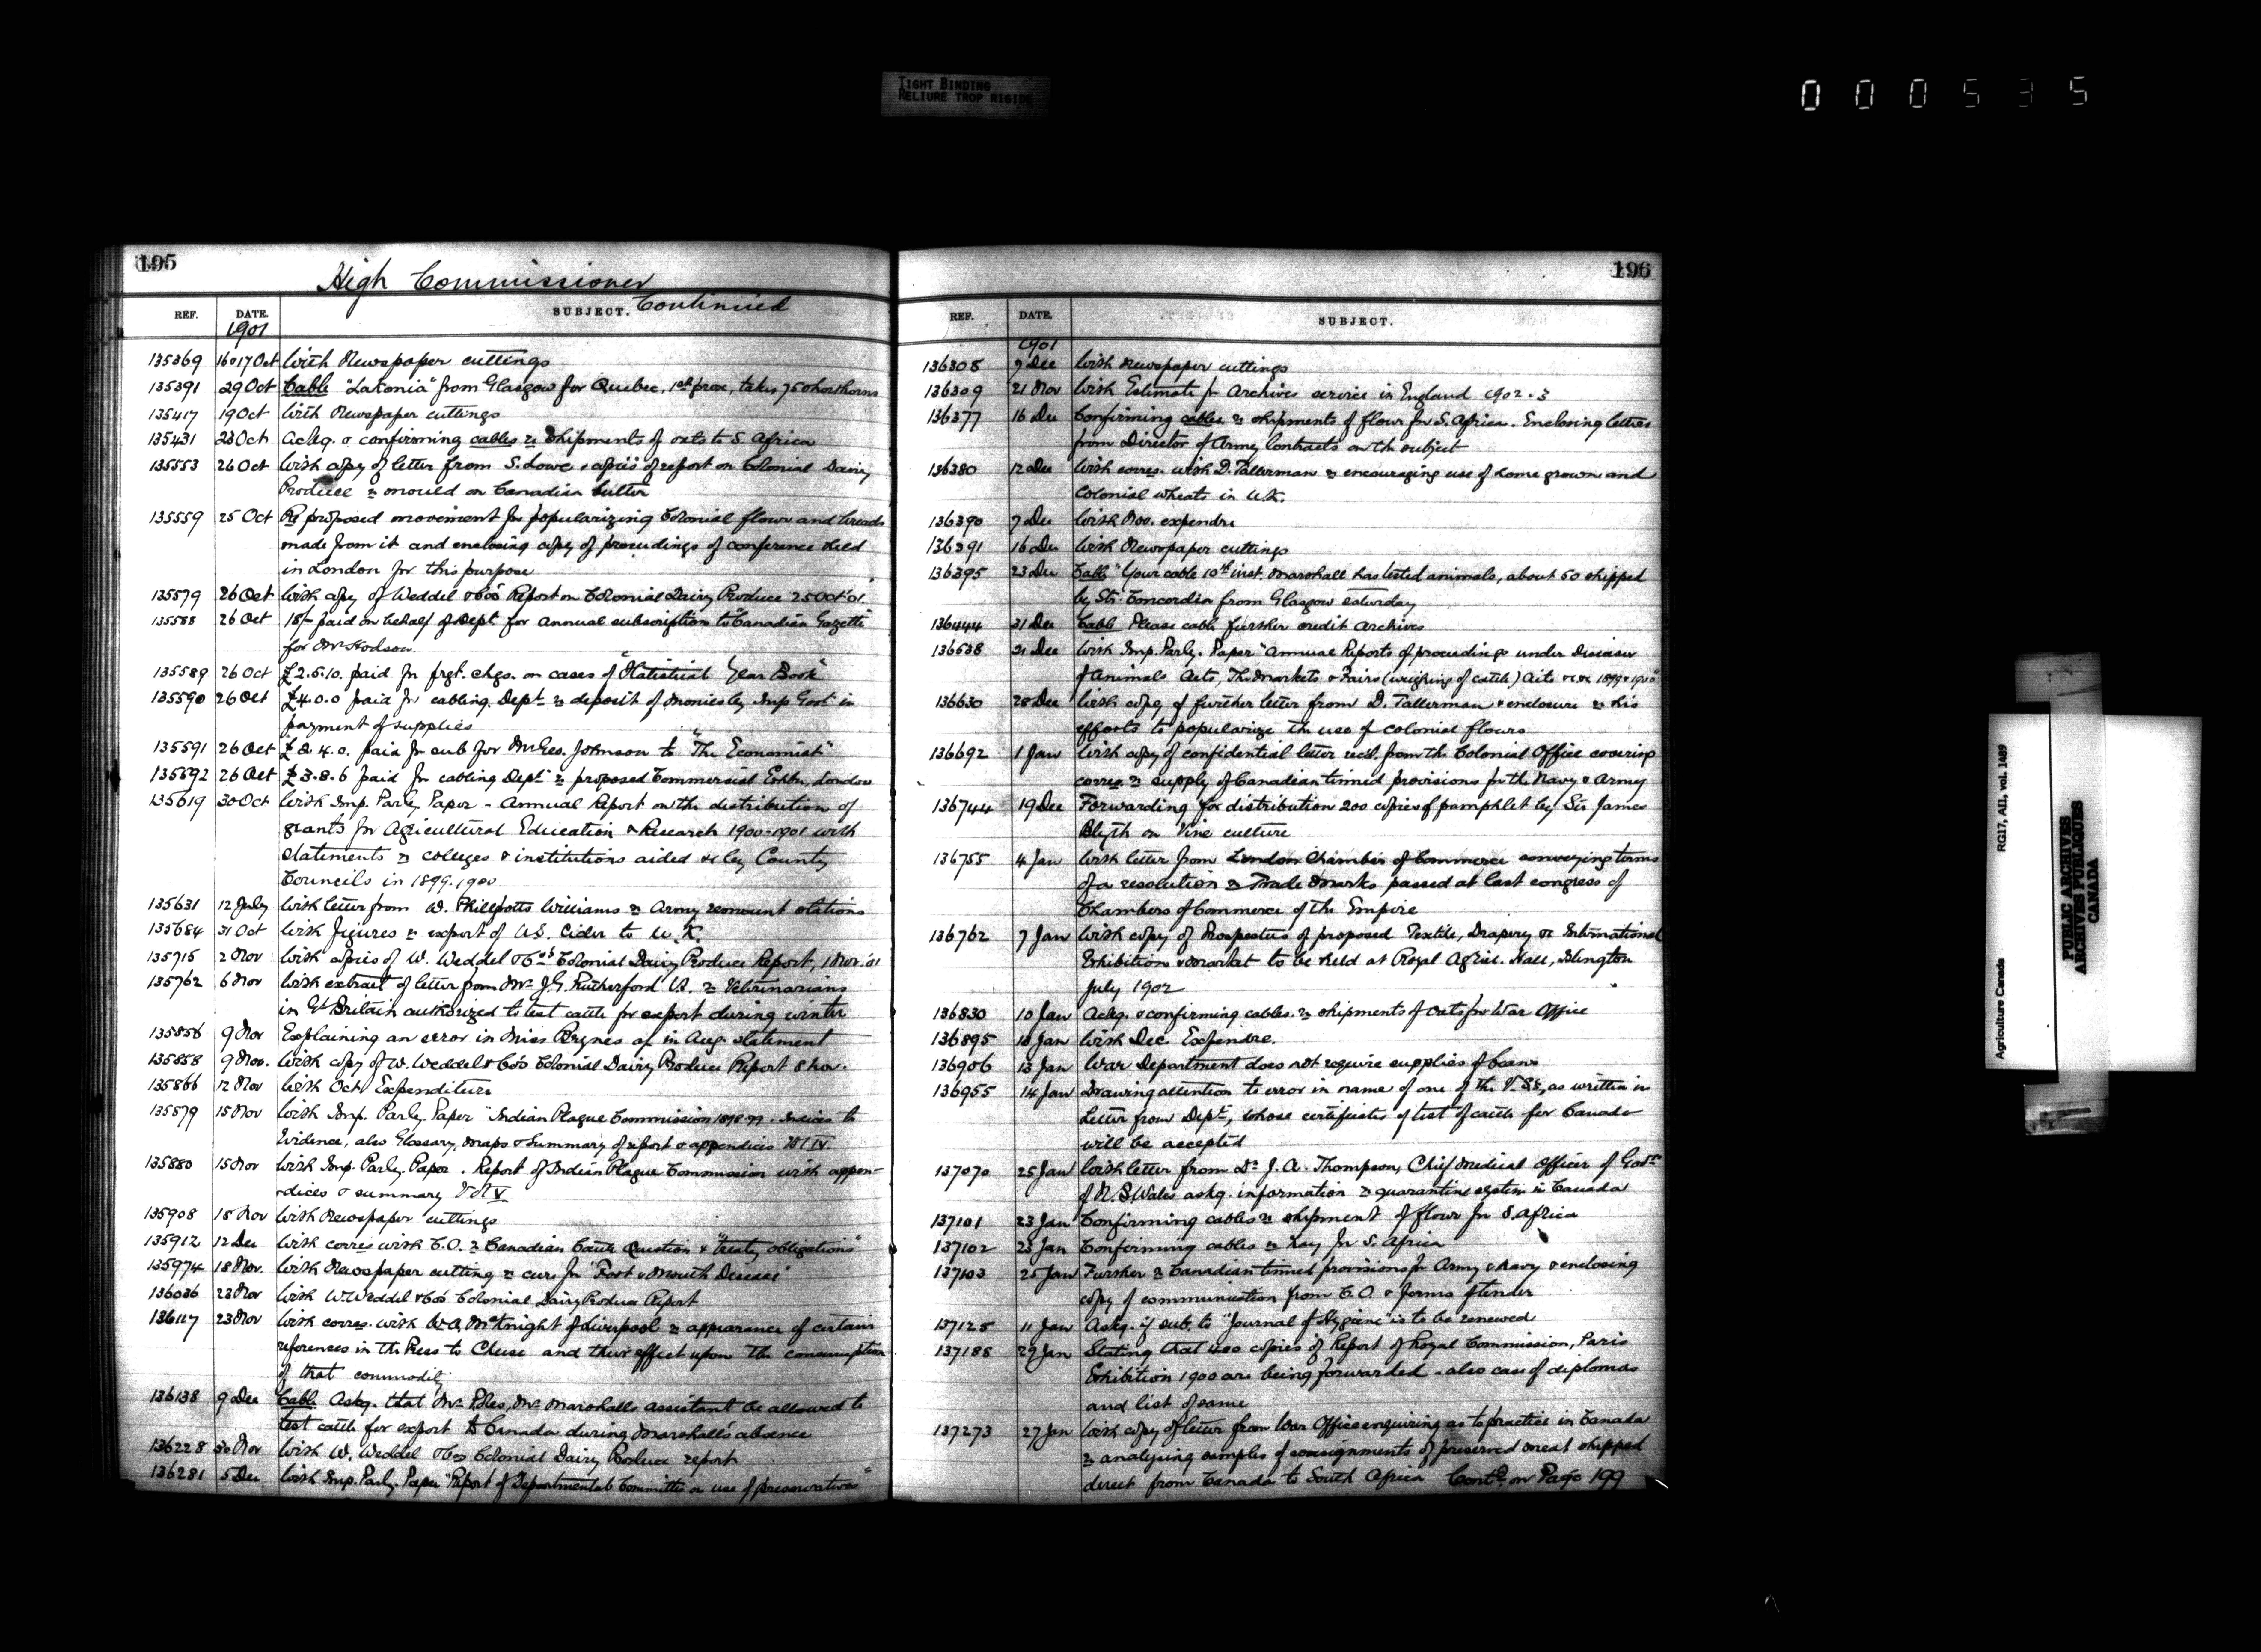 TIGHT BINDING
RELIURE TROP RIGIDE
000535
195
High Commissioner
Continued
REF. DATE. SUBJECT.
1901
135369 16 & 17 Oct With Newspaper cuttings
135391 29 Oct Cable "Lakonia" from Glasgow for Quebec, 1st prox, takes 75 shorthorns
135417 19 Oct With Newspaper cuttings
135431 23 Oct Ackg. & confirming cables re shipments of oats to S. Africa
135553 26 Oct With copy of letter from S. Lowe & copies of report on Colonial Dairy
Produce re mould on Canadian butter
135559 25 Oct Re proposed movement for popularizing Colonial flour and breads
made from it and enclosing copy of proceedings of conference held
in London for this purpose
135579 26 Oct With copy of Weddel & Co's Report on Colonial Dairy Produce 25 Oct '01
135588 26 Oct 18/- paid on behalf of Dept for annual subscription to "Canadian Gazette"
for Mr Hodson.
135589 26 Oct £2.5.10. paid for frgt. chgs. on cases of "Statistical Year Book"
135590 26 Oct £4.0.0 paid for cabling Dept re deposit of monies by Imp Govt in
payment of supplies
135591 26 Oct £2.4.0. paid for sub for Mr Geo. Johnson to "The Economist"
135592 26 Oct £3.8.6 paid for cabling Dept re proposed Commercial Exhbn, London
135619 30 Oct With Imp. Parly Paper - Annual Report on the distribution of
grants for Agricultural Education & Research 1900-1901 with
statements re colleges & institutions aided &c by County
Councils in 1899.1900
135631 12 July With letter from W. Phillpotts Williams re Army remount stations
135684 31 Oct With figures re export of U.S. Cider to U.K.
135715 2 Nov With copies of W. Weddel & Co's Colonial Dairy Produce Report, 1 Nov. '01
135762 6 Nov With extract of letter from Mr J.G. Rutherford V.S. re Veterinarians
in Gt Britain authorized to test cattle for export during winter
135856 9 Nov Explaining an error in Miss Brynes a/c in Aug. statement
135858 9 Nov. With copy of W. Weddel & Co's Colonial Dairy Produce Report 8 Nov.
135866 12 Nov With Oct. Expenditure
135879 15 Nov With Imp. Parly. Paper "Indian Plague Commission 1898-99. Indices to
Evidence, also Glossary, maps & Summary of report & appendices Vol IV
135880 15 Nov With Imp. Parly. Paper. Report of Indian Plague Commission with appen-
dices & summary Vol V
135908 18 Nov With Newspaper cuttings
135912 12 Dec With corres with C.O. re Canadian Cattle Question & "treaty obligations"
135974 18 Nov. With Newspaper cutting re cure for "Foot & Mouth Disease"
136036 23 Nov With W. Weddel & Co's Colonial Dairy Produce Report
136117 23 Nov With corres. with W.A. McKnight of Liverpool re appearance of certain
references in the Press to Cheese and their effect upon the consumption
of that commodity
136138 9 Dec Cable. Askg. that Mr Mr Marshall's assistant be allowed to
test cattle for export to Canada during Marshall's absence
136228 30 Nov With W. Weddel & Co's Colonial Dairy Produce report
136281 5 Dec With Imp. Parly. Paper "Report of Departmental Committee on use of preservatives"
196
REF. DATE. SUBJECT.
1901
136308 9 Dec With Newspaper cuttings
136309 21 Nov With Estimate for Archives service in England 1902.3
136377 16 Dec Confirming cables re shipments of flour for S. Africa. Enclosing letters
from Director of Army Contracts on the subject
136380 12 Dec With corres. with D. Tallerman re encouraging use of home grown and
Colonial wheats in U.K.
136390 7 Dec With Nov. expendre
136391 16 Dec With Newspaper cuttings
136395 23 Dec Cable "Your cable 10th inst. Marshall has tested animals, about 50 shipped
by Str. Concordia from Glasgow Saturday
136444 31 Dec Cable Please cable further credit Archives
136538 21 Dec With Imp. Parly. Paper "Annual Reports of proceedings under Diseases
of Animals Acts, The Markets & Fairs (weighing of cattle) Acts &c &c 1899 & 1900"
136630 28 Dec With copy of further letter from D. Tallerman & enclosure re his
efforts to popularize the use of colonial flours
136692 1 Jan With copy of confidential letter recd. from the Colonial Office covering
corres. re supply of Canadian tinned provisions for the Navy & Army
136744 19 Dec Forwarding for distribution 200 copies of pamphlet by Sir James
Blyth on Vine culture
136755 4 Jan With letter from London Chamber of Commerce conveying terms
of a resolution re Trade Marks passed at last congress of
Chambers of Commerce of the Empire
136762 7 Jan With copy of Prospectus of proposed Textile, Drapery &c International
Exhibition & market to be held at Royal Agricl. Hall, Islington
July 1902
136830 10 Jan Ackg. & confirming cables. re shipments of oats for War Office
136895 Jan With Dec. Expendre.
136906 13 Jan War Department does not require supplies of beans
136955 14 Jan Drawing attention to error in name of one of the V.SS, as written in
Letter from Dept, whose certificate of test of cattle for Canada
will be accepted
137070 25 Jan With letter from Dr J. A. Thompson, Chief Medical Officer of Govt
of N.S. Wales askg. information re quarantine system in Canada
137101 23 Jan Confirming cables re shipment of flour for S. Africa
137102 23 Jan Confirming cables re hay for S. Africa
137103 25 Jan Further re Canadian tinned provisions for Army & Navy & enclosing
copy of communication from C.O. & forms of tender
137125 11 Jan Askg. if sub. to "Journal of Hygiene" is to be renewed
137188 29 Jan Stating that copies of Report of Royal Commission, Paris
Exhibition 1900 are being forwarded - also case of diplomas
and list of same
137273 27 Jan With copy of letter from War Office enquiring as to practice in Canada
re analysing samples of consignments of preserved meat shipped
direct from Canada to South Africa Contd. on Page 199
Agriculture Canada RG17, AII, vol. 1489
PUBLIC ARCHIVES
ARCHIVES PUBLIQUES
CANADA